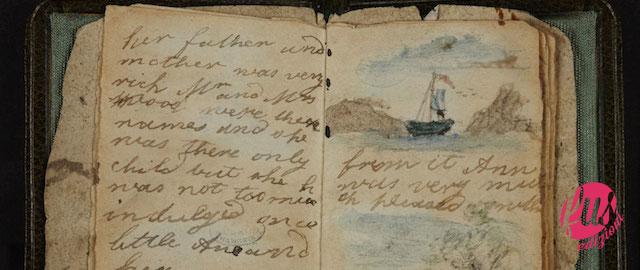 her father and
mother was very
rich Mr and Mrs
wood were there
names and she
was there only
child but she
was not too muc
indulged once
little Ane and
her
from it Ann
was very mu
ch pleased with
edizioni